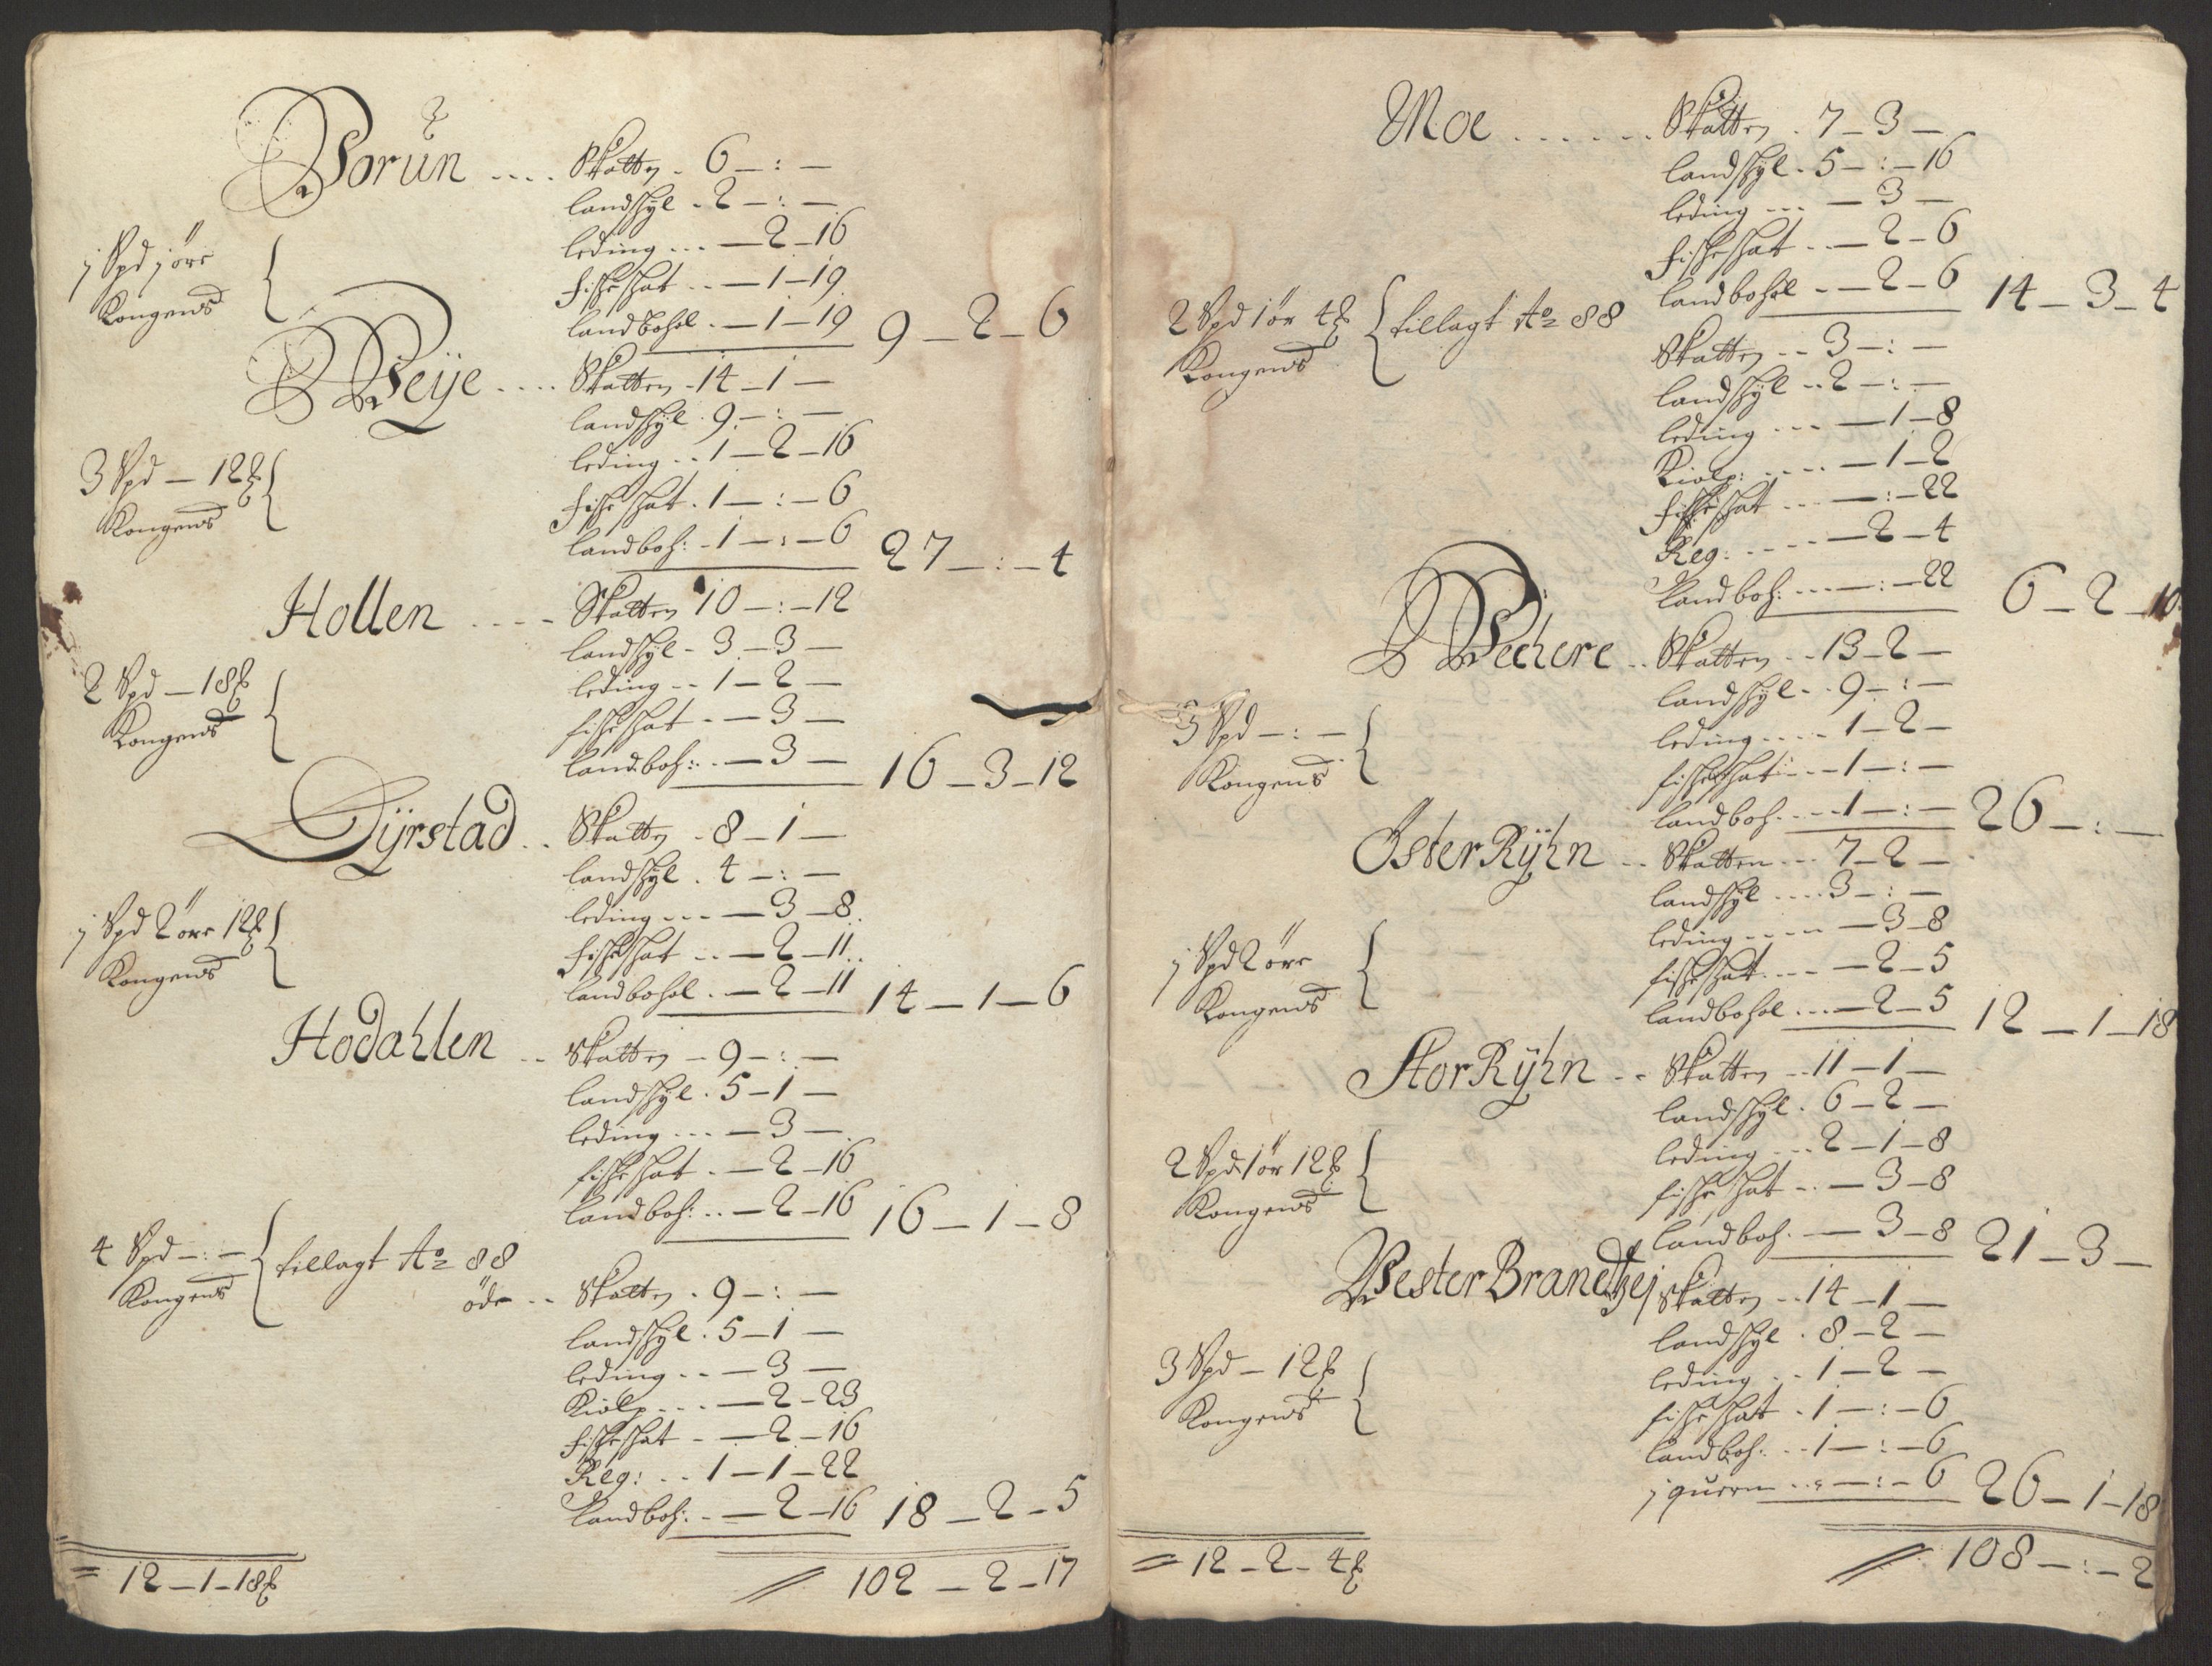 Vorun .... Skatten . 6 – : –
landskyl . 2 – : –
leding ... – 2 – 16
j Spd j öre
fiskeskat .. – 1 – 19
Kongens
landbohol . – 1 – 19 9 – 2 – 6
Veije .... Skatten . 14 – 1 –
landskyl . 9 – : –
leding .. 1 – 2 – 16
3 Spd – 12
fiskeskat . 1 – : – 6
Kongens
landboh: . 1 – : – 6 27 – : – 4
Hollen .... Skatten 10 – : – 12
landskyl – 3 – 3 –
leding .. 1 – 2 –
2 Spd – 18
fiskeskat . – 3 –
Kongens
landboh: . – 3 – 16 – 3 – 12
Dÿrstad .. Skatten . 8 – 1 –
landskyl . 4 – : –
leding ... – 3 – 8
j Spd 2 öre 12
fiskeskat .. – 2 – 11
Kongens
landbohol . – 2 – 11 14 – 1 – 6
Hodahlen .. Skatten – 9 – : –
landskyl . 5 – 1 –
leding ... – 3 –
fiskeskat . – 2 – 16
landboh: .. – 2 – 16 16 – 1 – 8
4 Spd – : – tillagt Ao 88
Kongens
öde .. Skatten . 9 – : –
landskyl . 5 – 1 –
leding .. – 3 –
Kiölp ... – 2 – 23
fiskeskat . – 2 – 16
Reg: .. 1 – 1 – 22
landboh: . – 2 – 16 18 – 2 – 5
= 12 – 1 – 18 102 – 2 – 17
Moe ...... Skatten . 7 – 3 –
landskyl . 5 – : – 16
leding ... – 3 –
fiskeskat .. – 2 – 6
landbohol . – 2 – 6 14 – 3 – 4
2 Spd 1 ör 4 tillagt Ao 88
Kongens
Skatten .. 3 – : –
landskyl .. 2 – : –
leding ... – 1 – 8
Kiölp: .... – 1 – 2
fiskeskat ... – : – 22
Reg: .... – 2 – 4
landboh: ... – : – 22 6 – 2 – 10
Vechere .. Skatten .. 13 – 2 –
landskyl .. 9 – : –
leding .... 1 – 2 –
3 Spd – : –
fiskeskat ... 1 – : –
Kongens
landboh. ... 1 – : – 26 – : –
ÖsterRÿhn .. Skatten ... 7 – 2 –
landskyl .... 3 – : –
leding .... – 3 – 8
j Spd 2 öre
fiskeskat .... – 2 – 5
Kongens
landbohol ... – 2 – 5 12 – 1 – 18
StorRÿhn .. Skatten .. 11 – 1 –
landskyl . 6 – 2 –
leding ... 2 – 1 – 8
2 Spd 1 ör 12
fiskeskat .. – 3 – 8
Kongens
landboh. . – 3 – 8 21 – 3 –
Skatten .. 14 – 1 –
landskyl . 8 – 2 –
leding .. 1 – 2 –
3 Spd – 12
fiskeskat . 1 – : – 6
Kongens
landboh: .. 1 – : – 6
j quern ... – : – 6 26 – 1 – 18
= 12 – 2 – 4 108 – : – 2